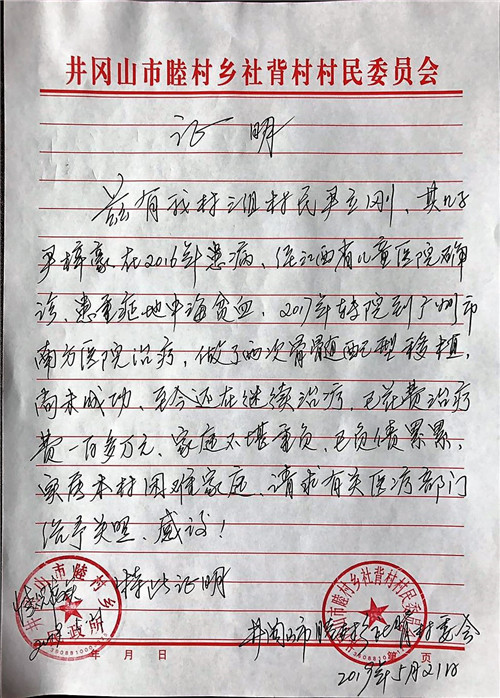 井冈山市睦村乡社背村村民委员会
证明
兹有我村三组村民尹立刚、其儿子
尹梓豪在2016年患病、经江西省儿童医院确
诊、患重症地中海贫血、2017年转院到广州市
南方医院治疗，做了两次骨髓配型移植，
尚未成功、至今还在继续治疗、已花费治疗
费一百多万元、家庭不堪重负、已负债累累、
实属本村困难家庭、请求有关医疗部门
给予关照、感谢！
特此证明
井冈山市睦村乡
情况属实
民政所
井冈山市睦村乡社背村村民委员会
井冈山市睦村乡社背村委会
年 月 日
2019年5月21日